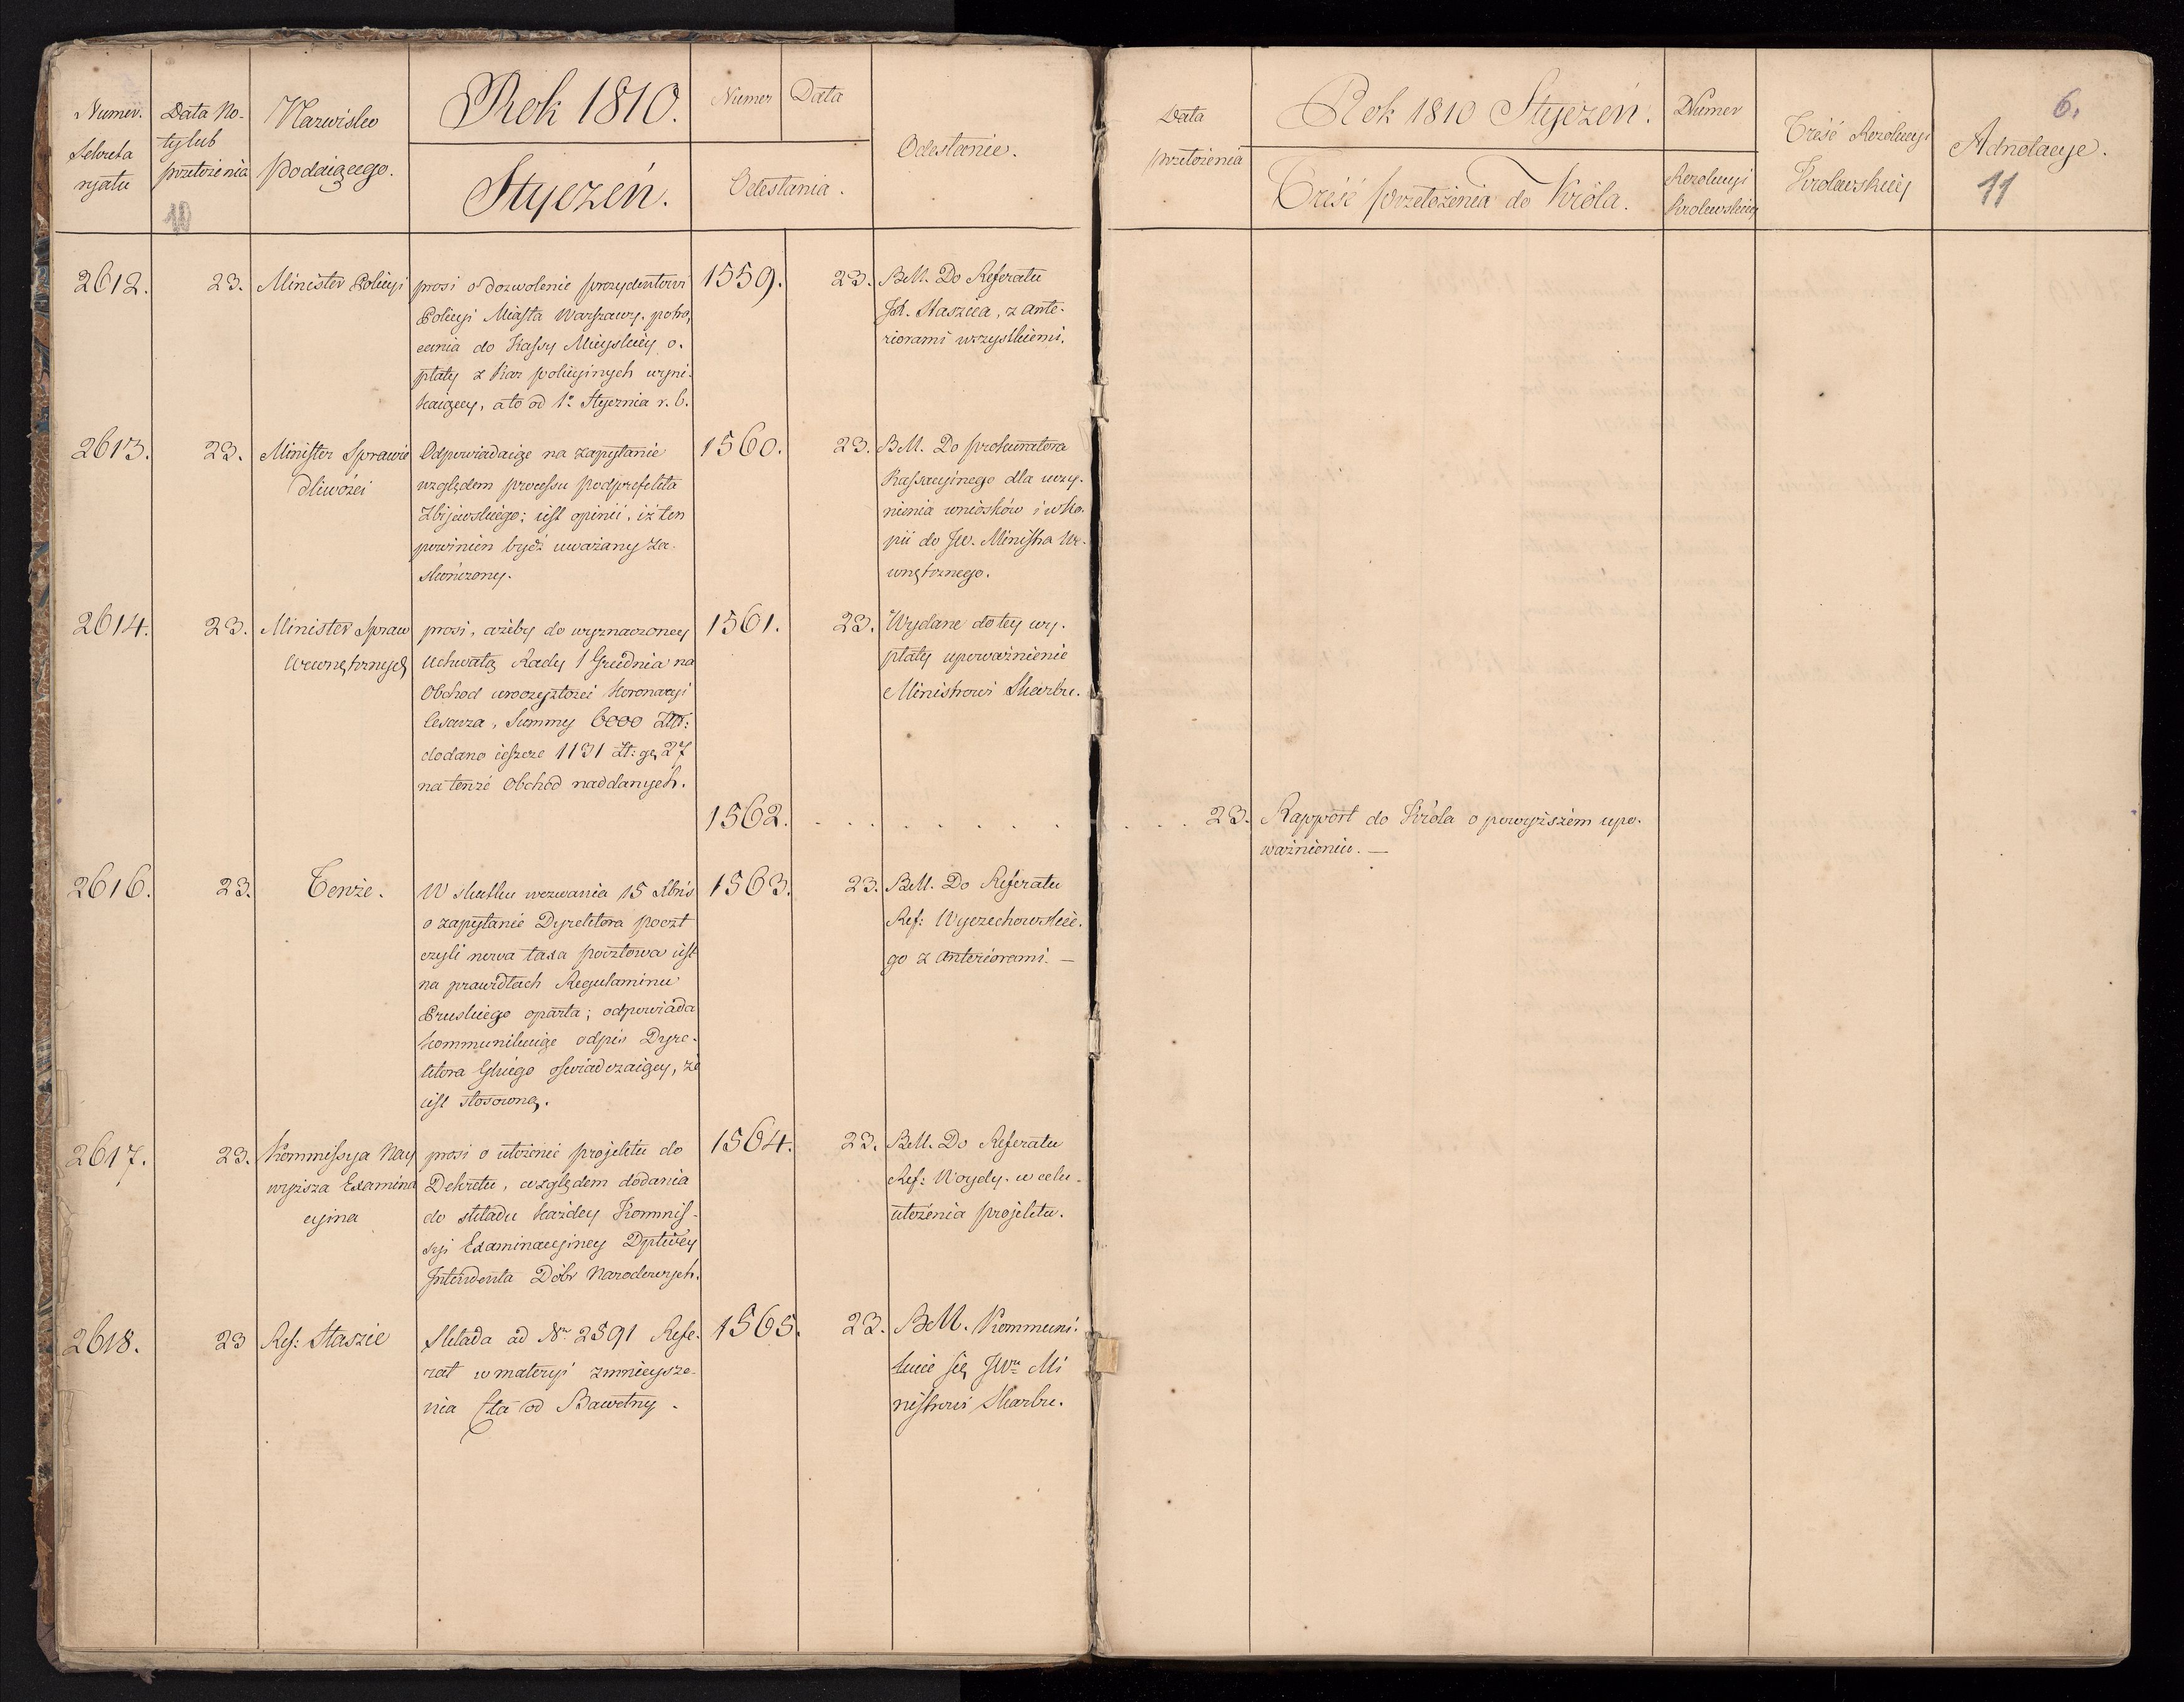 Numer. Sekreta ryatu
Data No- ty lub przełożenia
10
Nazwisko Podaiącego.
Rok 1810.
Styczeń.
Numer Data
Odesłania.
Odesłanie.
2612.
23.
Minister Policyi
prosi o dozwolenie prezydentowi
Policyi Miasta Warszawy. potrą
cania do Kassy Mieyskiéy o-
płaty z Kar policyinych wyni-
kaiącey, a to od 1o Stycznia r. b.
1559.
23.
BM. Do Referatu
JX. Staszica, z ante-
riorami wszystkiemi.
2613.
23.
Minister Sprawie
dliwości
Odpowiadaiąc na zapytanie
względem processu podprefekta
Zbijewskiego; iest opinii, iż ten
powinien bydź uważany za
skończony.
1560.
23.
BM. Do prokuratora
Kassacyinego dla uczy-
nienia wniosków i w Ko-
pii do JW. Ministra We-
wnętrznego.
2614.
23.
Minister Spraw
Wewnętrznych
prosi, ażeby do wyznaczoney
Uchwałą Rady 1 Grudnia na
Obchod uroczystości Koronacyi
Cesarza, Summy 6000 Złt:
dodano ieszcze 1131 Zł: gr 27
na tenże Obchód naddanych.
1561.
23.
Wydane do tey wy-
płaty upoważnienie
Ministrowi Skarbu.
1562. . . . . . . . .
2616.
23.
Tenże.
W skutku wezwania 15 Xbris
o zapytanie Dyrektora poczt
czyli nowa taxa pocztowa iest
na prawidłach Regulaminu
Pruskiego oparta; odpowiada
kommunikuiąc odpis Dyre-
ktora Głnego oświadczaiący, że
iest stosowną.
1563.
23.
BM. Do Referatu
Ref: Wyczechowskie-
go z anteriorami. —
2617.
23.
Kommissya Nay
wyższa Examina
cyina
prosi o ułożenie projektu do
Dekretu, względem dodania
do składu każdey Kommis-
syi Examinacyiney Dptwéy
Intendenta Dóbr Narodowych.
1564.
23.
BM. Do Referatu
Ref: Woydy. w celu
ułożenia projektu.
2618.
23
Ref: Staszic
Składa ad Nr. 2591 Refe-
rat w materyi zmnieysze-
nia Cła od Bawełny.
1565.
23.
BM. Kommuni-
kuie się JWu Mi
nistrowi Skarbu.
Data przełożenia
Rok 1810 Styczeń.
Treść przełożenia do Króla.
Numer
Rezolucyi Krolewskiey
Treść Rezolucyi
Krolewskiéy
6.
Adnotacye.
11
. . . 23.
Rapport do Króla o powyższém upo-
ważnieniu. —